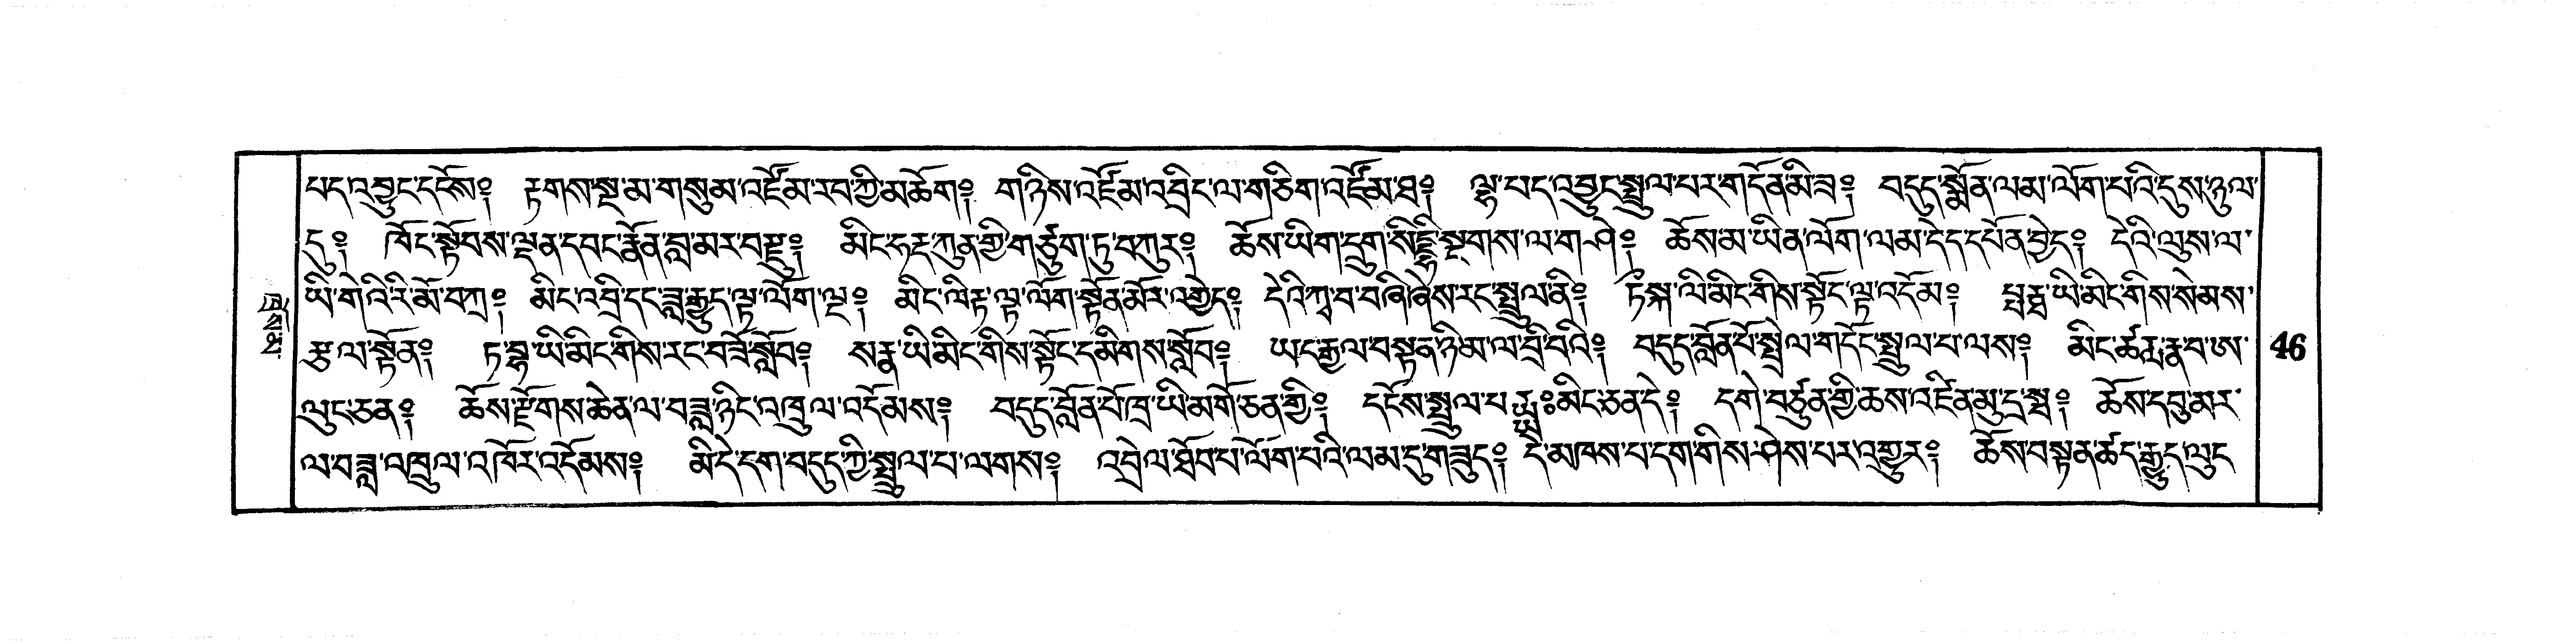 པད་འབྱུང་དངོས༔ རྟགས་སྔ་མ་གསུམ་འཛོམ་རབ་ཀྱི་མཆོག༔ གཉིས་འཛོམ་འབྲིང་ལ་གཅིག་འཛོམ་ཐ༔ ལྷ་པད་འབྱུང་སྤྲུལ་པར་གདོན་མི་ཟ༔ བདུད་སྨོན་ལམ་ལོག་པའི་དུས་ཉུལ་
དུ༔ ཁོང་སྟོབས་ལྡན་དབང་རྣོན་བླ་མར་བརྫུ༔ མིང་ཧ་ར་ཀུན་གྱི་གཙུག་ཏུ་བཀུར༔ ཆོས་ཡིག་དྲུག་སིདྡྷི་སྔགས་ལ་གཤེ༔ ཆོས་མ་ཡིན་ལོག་ལམ་དེད་དཔོན་བྱེད༔ དེའི་ལུས་ལ་
ཡི་གེའི་རི་མོ་བཀྲ༔ མིང་འབྲི་དང་ཟླ་རྒྱུད་ལྟ་ལོག་ལྔ༔ མིང་ལི་རྟ་ལྟ་ལོག་སྟོན་མོར་འགྱེད༔ དེའི་ཀཱ་བ་བཞི་ཞེས་རང་སྤྲུལ་ནི༔ ཏི་ལི་མིང་གིས་སྟོང་ལྟ་འདོམ༔ ཡི་མིང་གིས་སེམས་
རྩལ་སྟོན༔ ཏ་ཡི་མིང་གིས་རང་བཟོ་སློབ༔ ས་ཡི་མིང་གིས་སྟོང་དམིགས་སློབ༔ ཡང་རྒྱལ་བསྟན་ཉམ་ལ་བྲི་བའི༔ བདུད་བློན་པོ་སྤྲེལ་གདོང་སྤྲུལ་པ་ལས༔ མིང་
ལུང་ཅན༔ ཆོས་རྫོགས་ཆེན་ལ་བཟླ་ཉིང་འཁྲུལ་འདོམས༔ བདུད་བློན་པོ་ཁྲ་ཡི་མགོ་ཅན་གྱི༔ དངོས་སྤྲུལ་པ་མིང་ཅན་དེ༔ དགེ་བཙུན་གྱི་ཆས་འཛིན་མུ་དྲ་སྨྲ༔ ཆོས་དབུ་མར་
ལ་བཟླ་འཁྲུལ་འཁོར་འདོམས༔ མི་དེ་དག་བདུད་ཀྱི་སྤྲུལ་པ་ལགས༔ འབྲེལ་ཐོབ་པ་ལོག་པའི་ལམ་དུ་གཟུད༔ དེ་མཁས་པ་དག་གིས་ཤེས་པར་འགྱུར༔ ཆོས་བསྟན་ཚད་རྒྱུད་ལུང
46